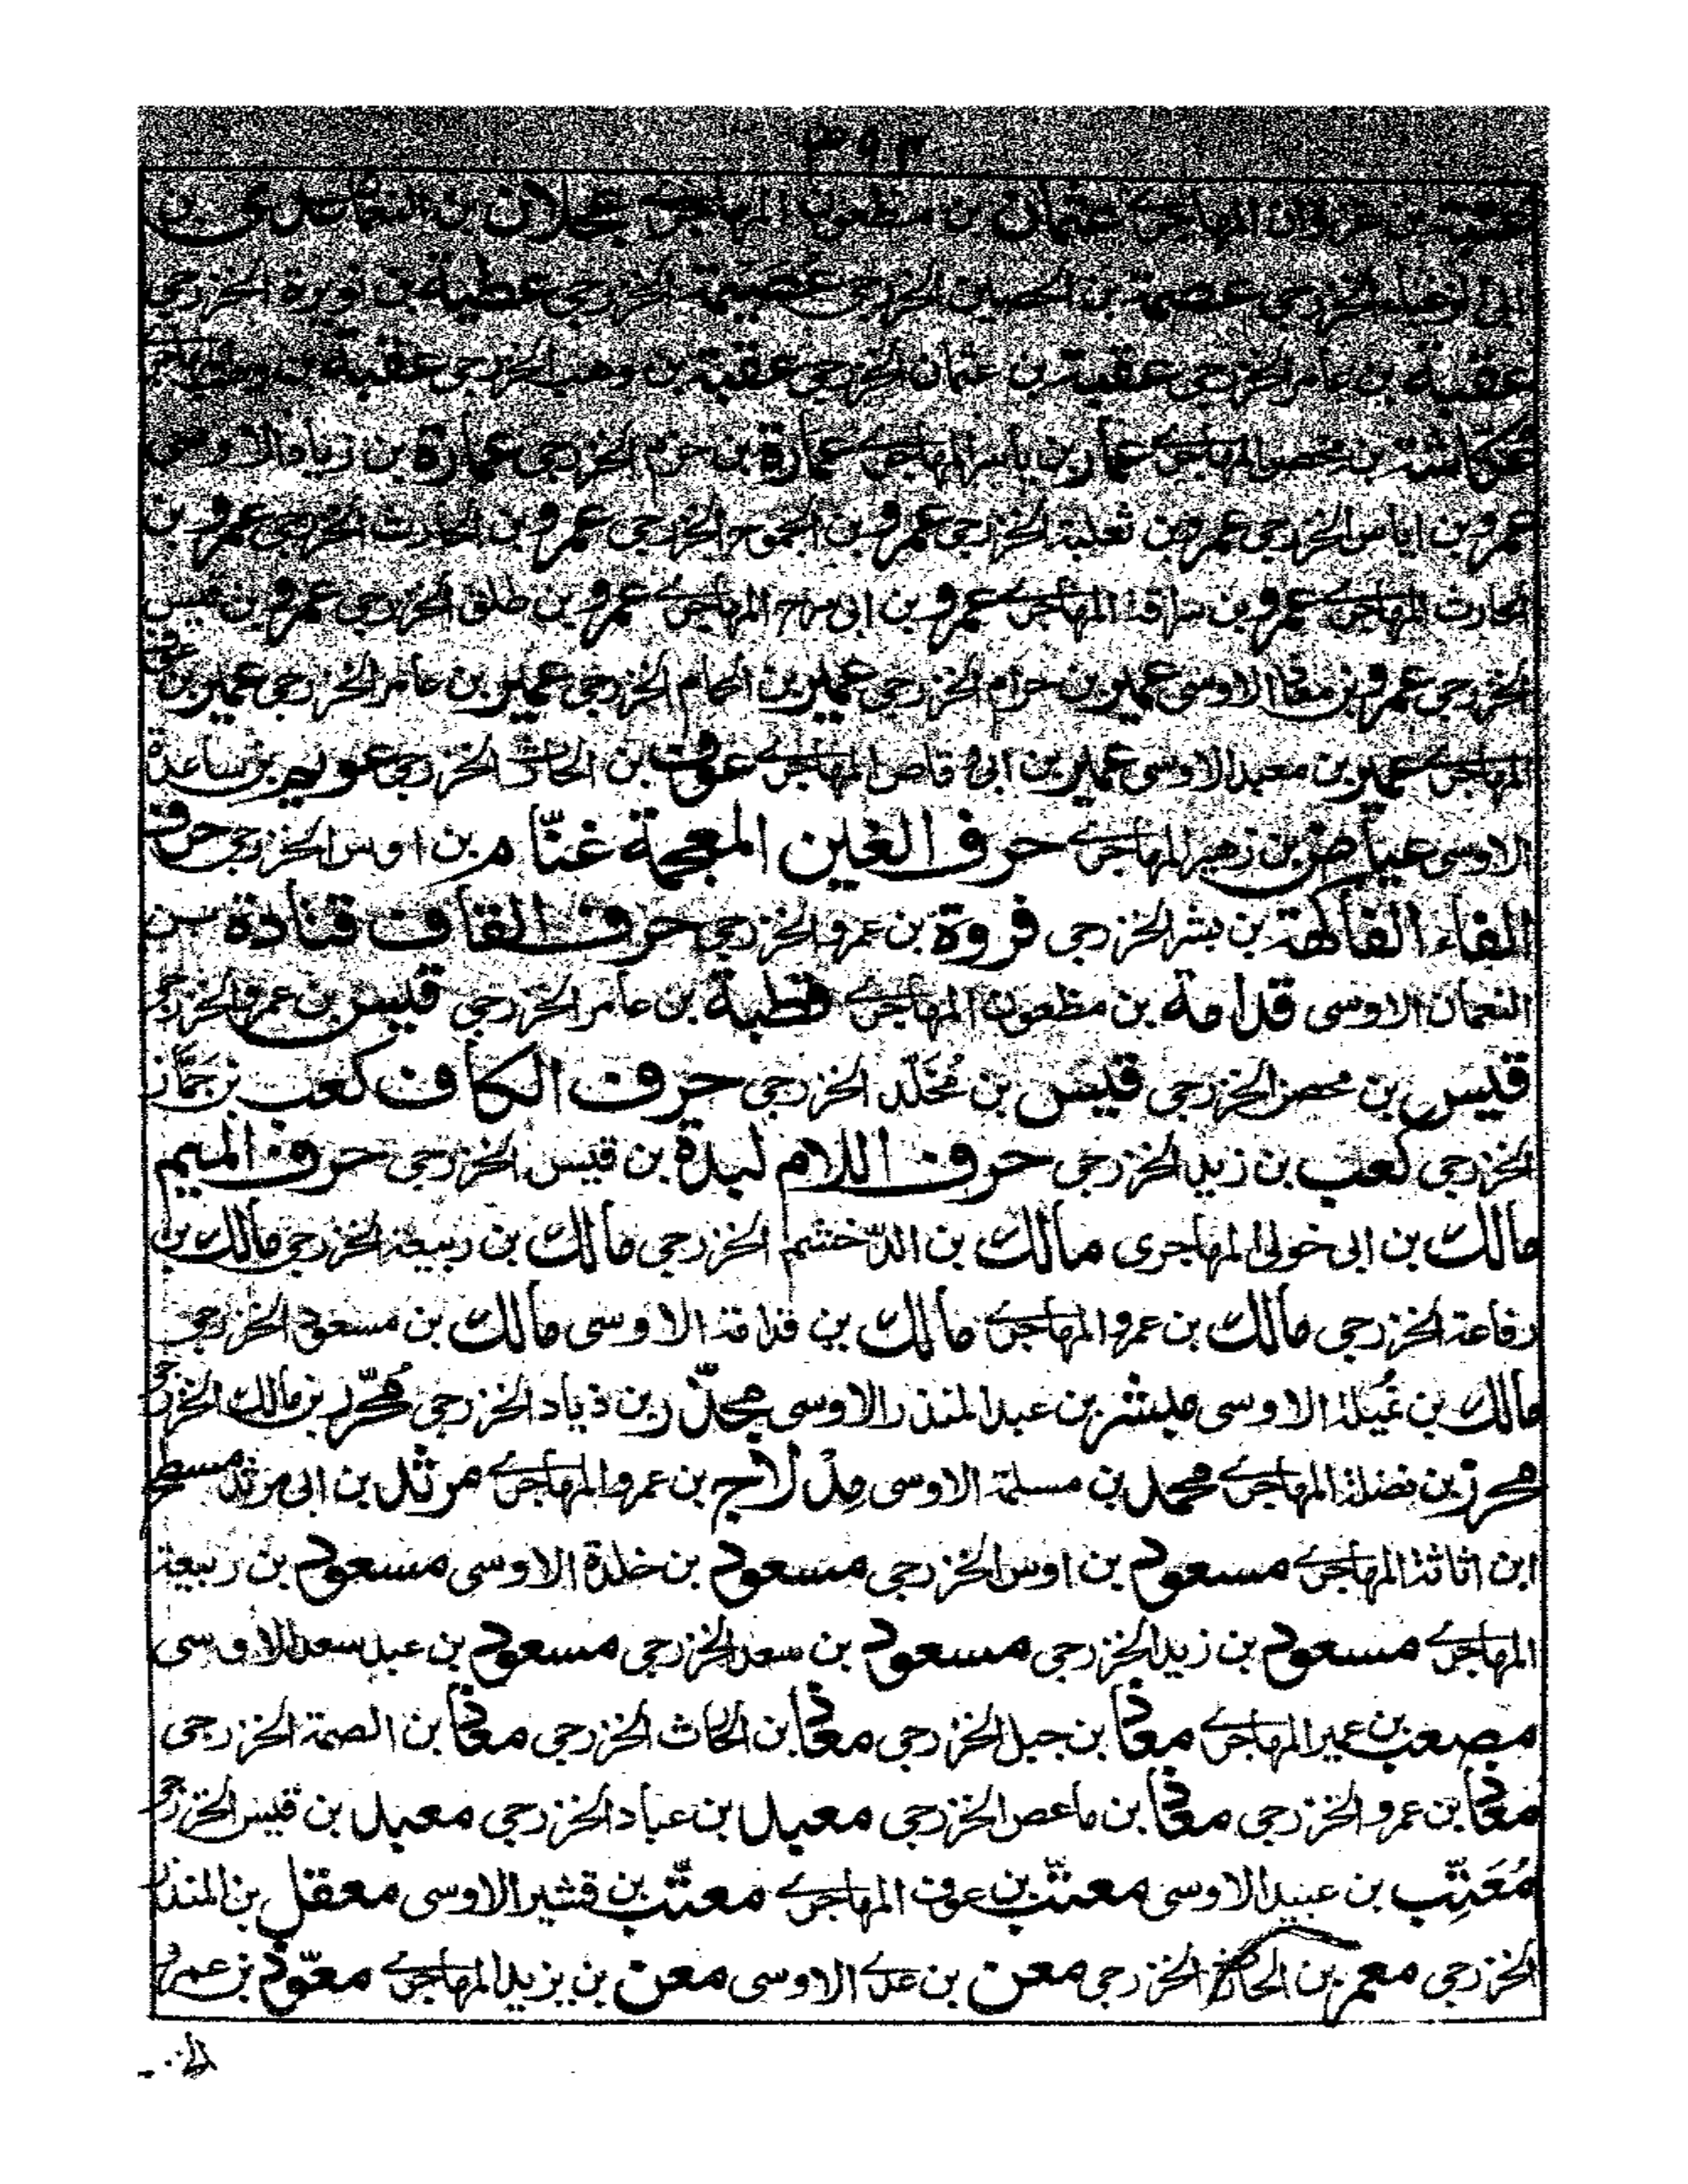 ٣٩٣
عتبة بن غزوان المهاجرى عثمان بن مظعون المهاجرى عجلان بن النعمان عدى بن
ابى الزغباء الخزرجى عصمة بن الحصين الخزرجى عصيمة الخزرجى عطية بن نويرة الخزرجى
عقبة بن عامر الخزرجى عقبة بن عثمان الخزرجى عقبة بن وهب الخزرجى عقبة بن وهب المهاجرى
عكاشة بن محصن المهاجرى عمار بن ياسر المهاجرى عمارة بن حزم الخزرجى عمارة بن زياد الاوسى
عمرو بن اياس الخزرجى عمرو بن ثعلبة الخزرجى عمرو بن الجموح الخزرجى عمرو بن الحارث الخزرجى عمرو بن
الحارث المهاجرى عمرو بن سراقة المهاجرى عمرو بن ابى سرح المهاجرى عمرو بن طلق الخزرجى عمرو بن قيس
الخزرجى عمرو بن معاذ الاوسى عمير بن حرام الخزرجى عمير بن الحمام الخزرجى عمير بن عامر الخزرجى عمير بن عوف
المهاجرى عمير بن معبد الاوسى عمير بن ابى وقاص المهاجرى عوف بن الحارث الخزرجى عويم بن ساعدة
الاوسى عياض بن زهير المهاجرى حرف الغين المعجمة غنّام بن اوس الخزرجى حرف
الفاء الفاكهة بن بشر الخزرجى فروة بن عمرو الخزرجى حرف القاف قتادة بن
النعمان الاوسى قدامة بن مظعون المهاجرى قطبة بن عامر الخزرجى قيس بن عمرو الخزرجى
قيس بن محصن الخزرجى قيس بن مُخَلّد الخزرجى حرف الكاف كعب بن جَمَّاز
الخزرجى كعب بن زيد الخزرجى حرف اللام لبدة بن قيس الخزرجى حرف الميم
مالك بن ابى خولى المهاجرى مالك بن الدّخشم الخزرجى مالك بن ربيعة الخزرجى مالك بن
رفاعة الخزرجى مالك بن عمرو المهاجرى مالك بن قدامة الاوسى مالك بن مسعود الخزرجى
مالك بن نُميلة الاوسى مبشر بن عبد المنذر الاوسى مجذّر بن ذياد الخزرجى مُحرّر بن مالك الخزرجى
محرز بن نضلة المهاجرى محمد بن مسلمة الاوسى مِدْلاج بن عمرو المهاجرى مرثد بن ابى مرثد مسطح
ابن اثاثة المهاجرى مسعود بن اوس الخزرجى مسعود بن خلدة الاوسى مسعود بن ربيعة
المهاجرى مسعود بن زيد الخزرجى مسعود بن سعد الخزرجى مسعود بن عبد سعد الاوسى
مصعب بن عمير المهاجرى معاذ بن جبل الخزرجى معاذ بن الحارث الخزرجى معاذ بن الصمة الخزرجى
معاذ بن عمرو الخزرجى معاذ بن ماعص الخزرجى معبد بن عباد الخزرجى معبد بن قيس الخزرجى
مُعَتِّب بن عبيد الاوسى معتّب بن عوف المهاجرى معتّب بن قشير الاوسى معقل بن المنذر
الخزرجى معمر بن الحارث الخزرجى معن بن عدى الاوسى معن بن يزيد المهاجرى معوّذ بن عمرو